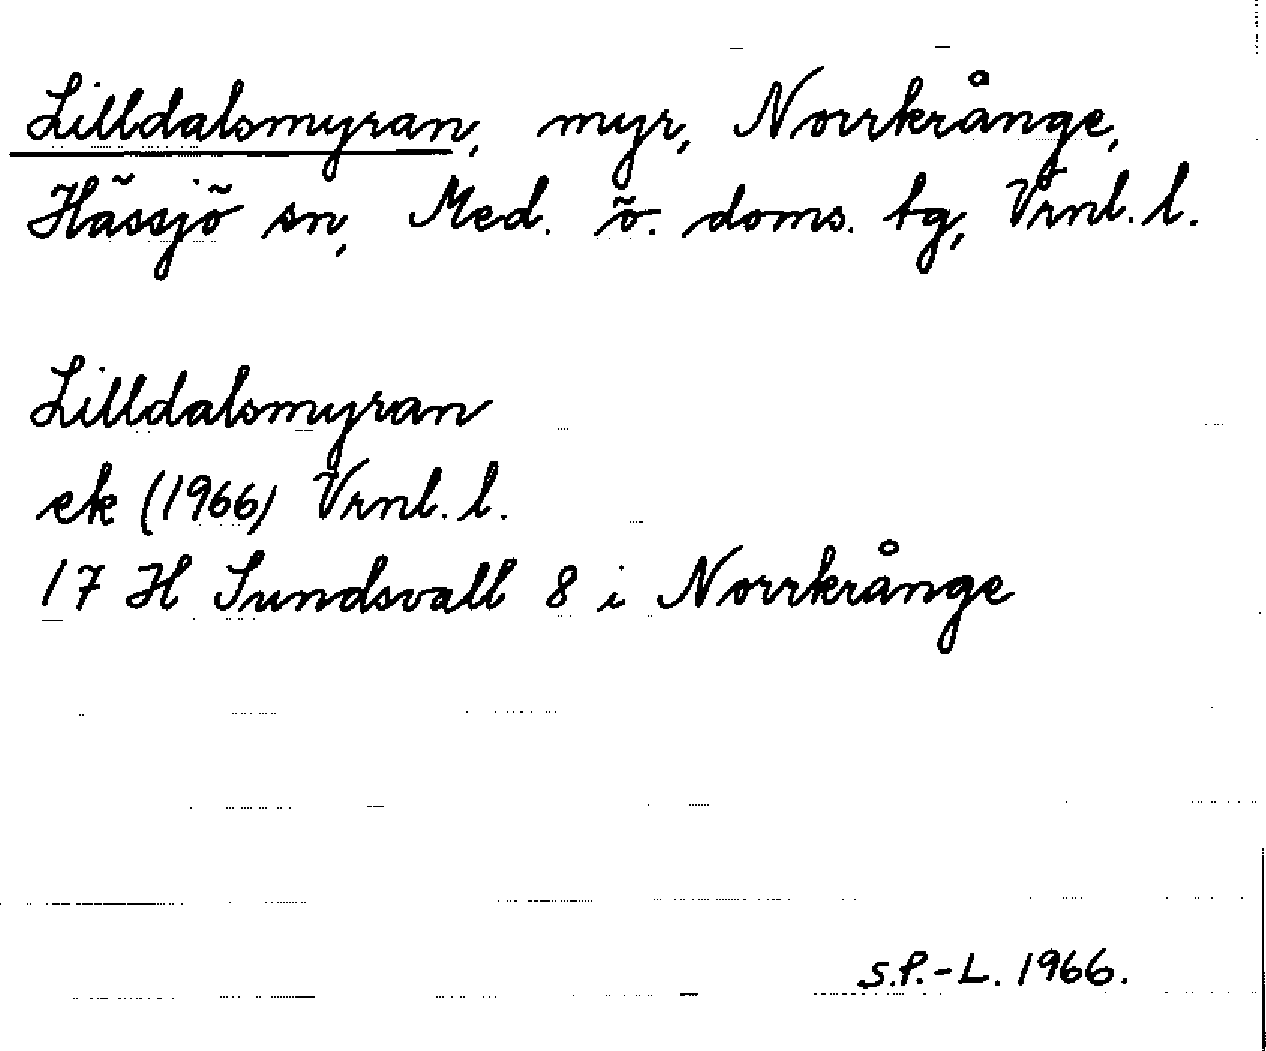 Lilldalsmyran, myr, Norrkrånge,
Hässjö sn, Med. ö. doms. tg, Vrnl. l.
Lilldalsmyran
ek (1966) Vrnl. l.
17 H Sundsvall 8 i Norrkrånge
S.P.-L. 1966.